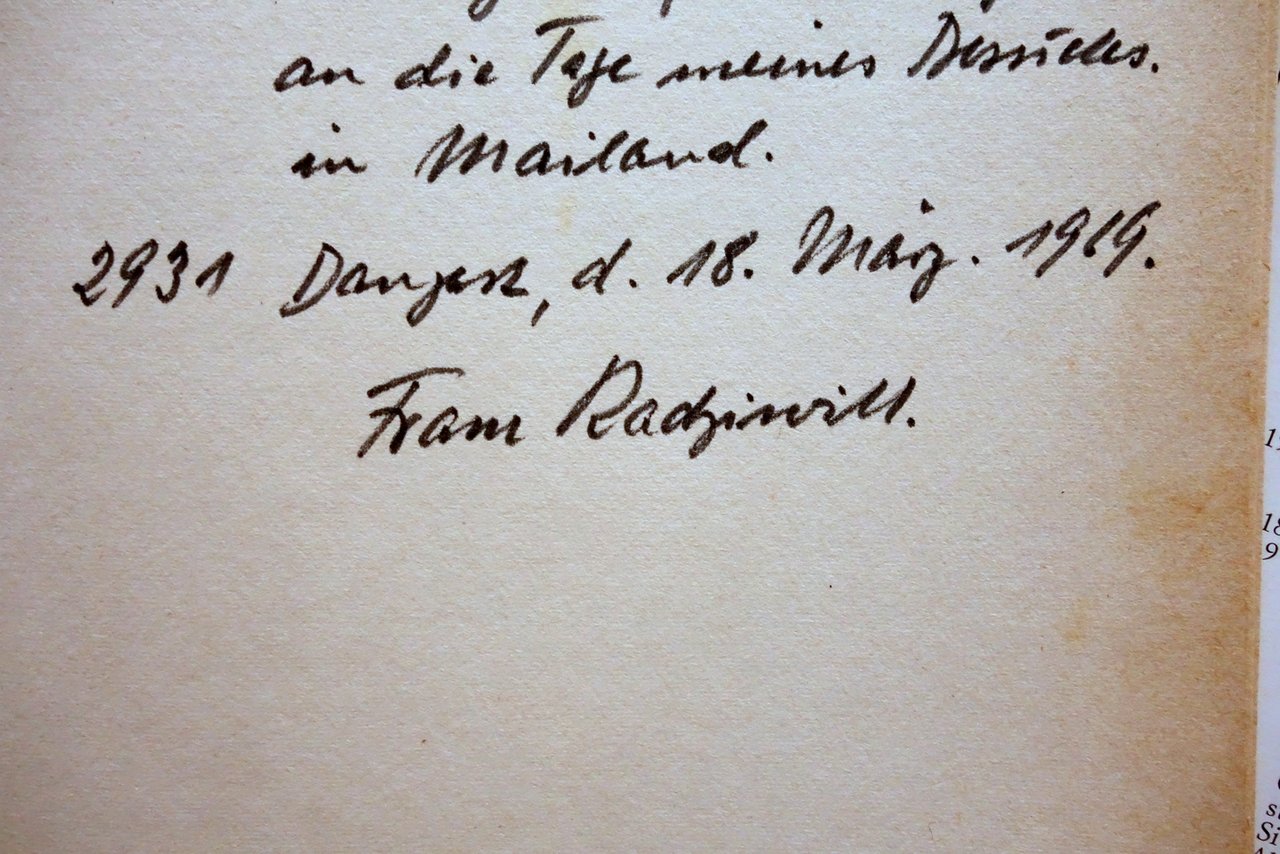 an die Tage meines Besuches.
in Mailand.
2931 Dangast, d. 18. März. 1969.
Franz Radziwill.